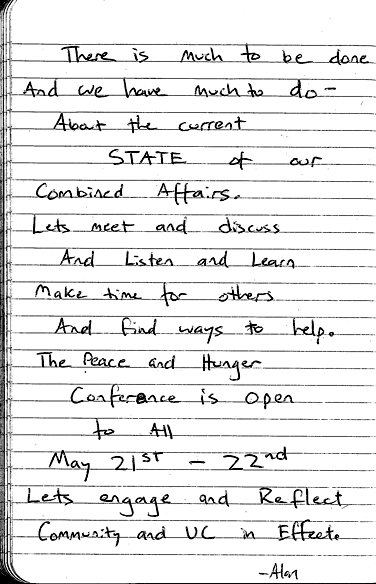 There is much to be done
And we have much to do -
About the current
STATE of our
Combined Affairs.
Lets meet and discuss
And Listen and Learn
Make time for others
And find ways to help.
The Peace and Hunger
Conference is Open
to All
May 21st - 22nd
Lets engage and Reflect
Community and UC in Effect.
-Alan